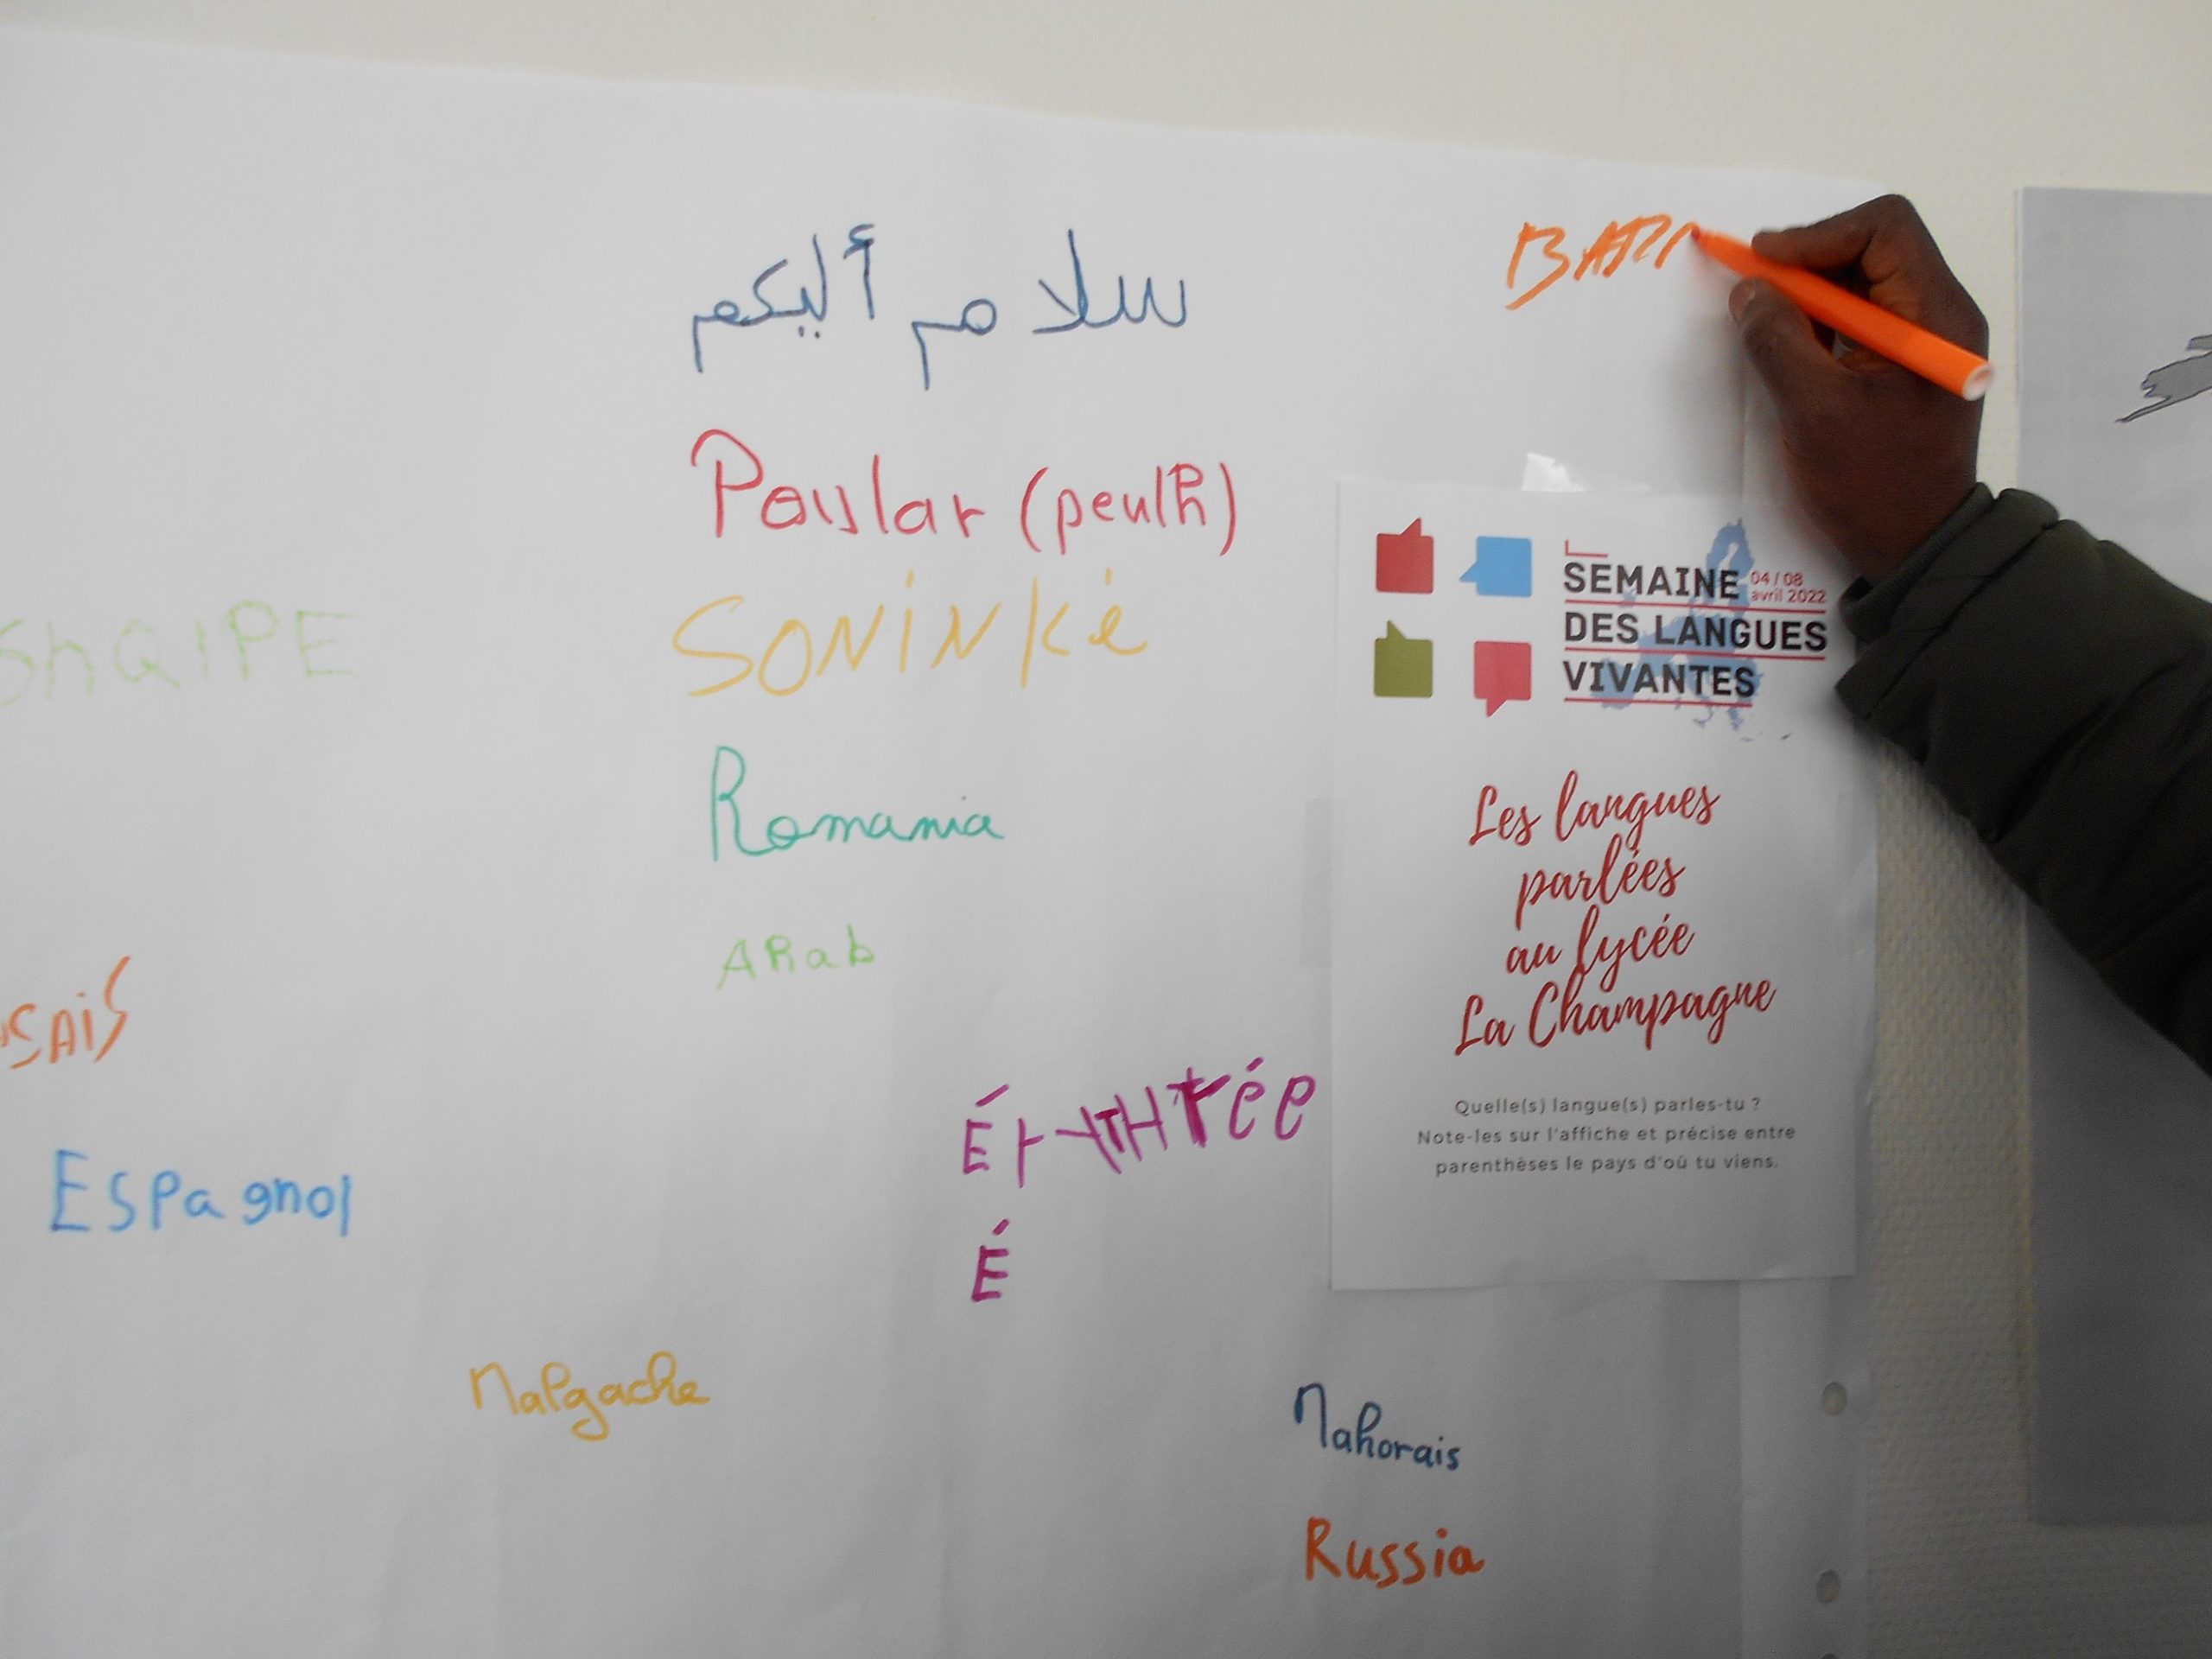 سلام أليكم
Poular (peulh)
SONINKé
Romania
ARab
ShQIPE
Espagnol
Érythrée
É
Malgache
Mahorais
Russia
SEMAINE
04 / 08
avril 2022
DES LANGUES
VIVANTES
Les langues
parlées
au lycée
La Champagne
Quelle(s) langue(s) parles-tu ?
Note-les sur l'affiche et précise entre
parenthèses le pays d'où tu viens.